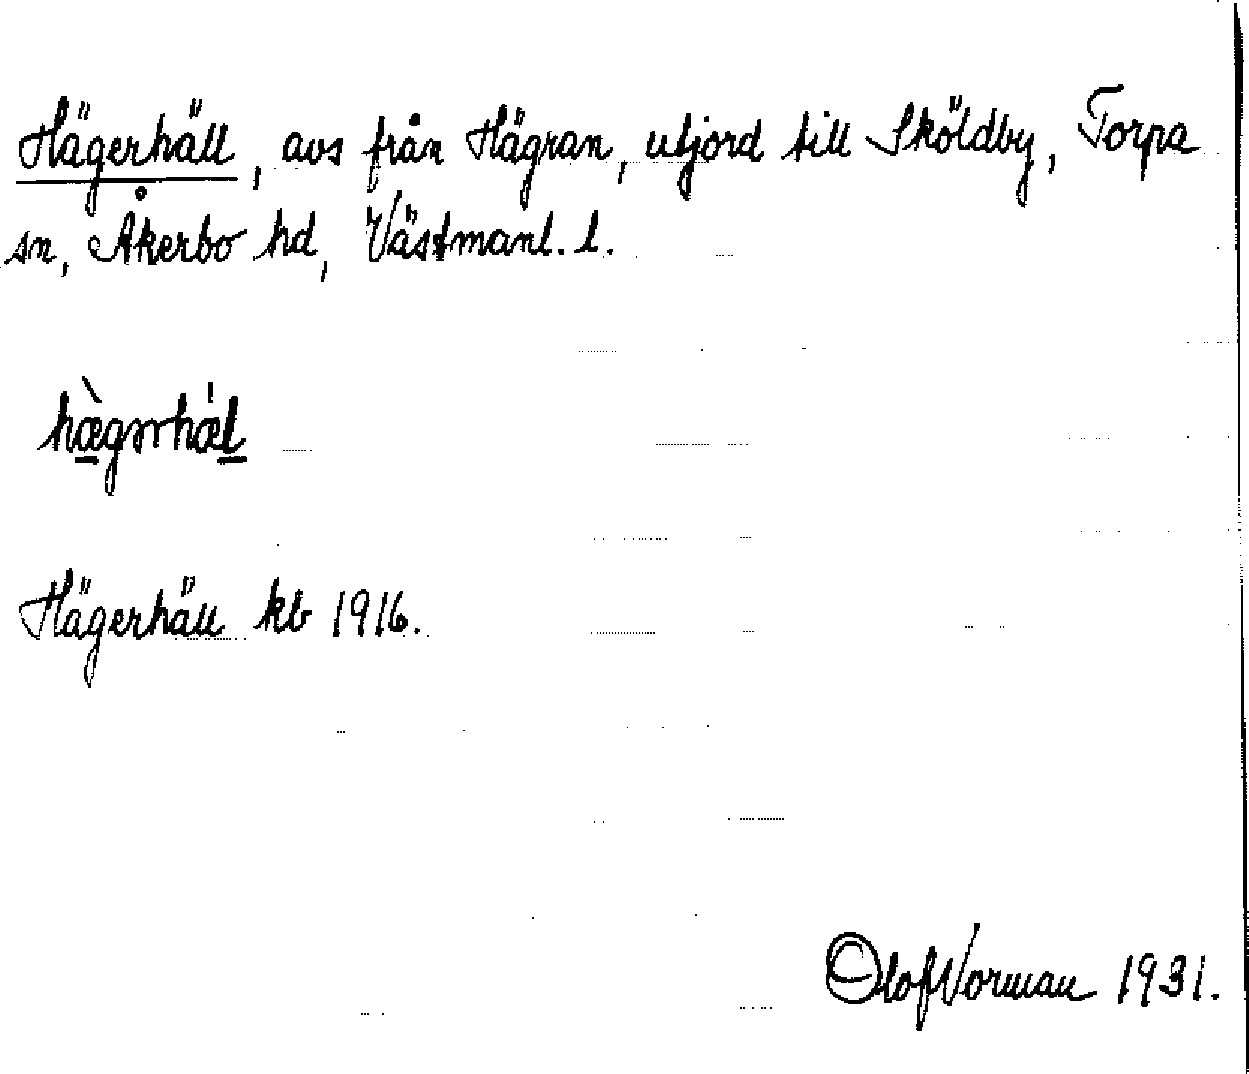 Hägerhäll, avs från Hägran, utjord till Sköldby, Torpa
sn, Åkerbo hd, Västmanl. l.
hæ̀gərhæ̍l
Hägerhäll kb 1916.
Olof Norman 1931.